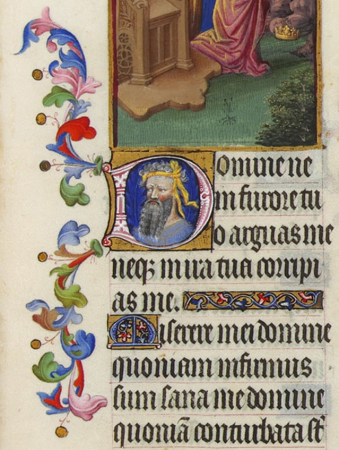 Domine ne
in furore tu
o arguas me
neq; in ira tua corripi
as me.
Miserere mei domine
quoniam infirmus
sum sana me domine
quoniã conturbata sũt